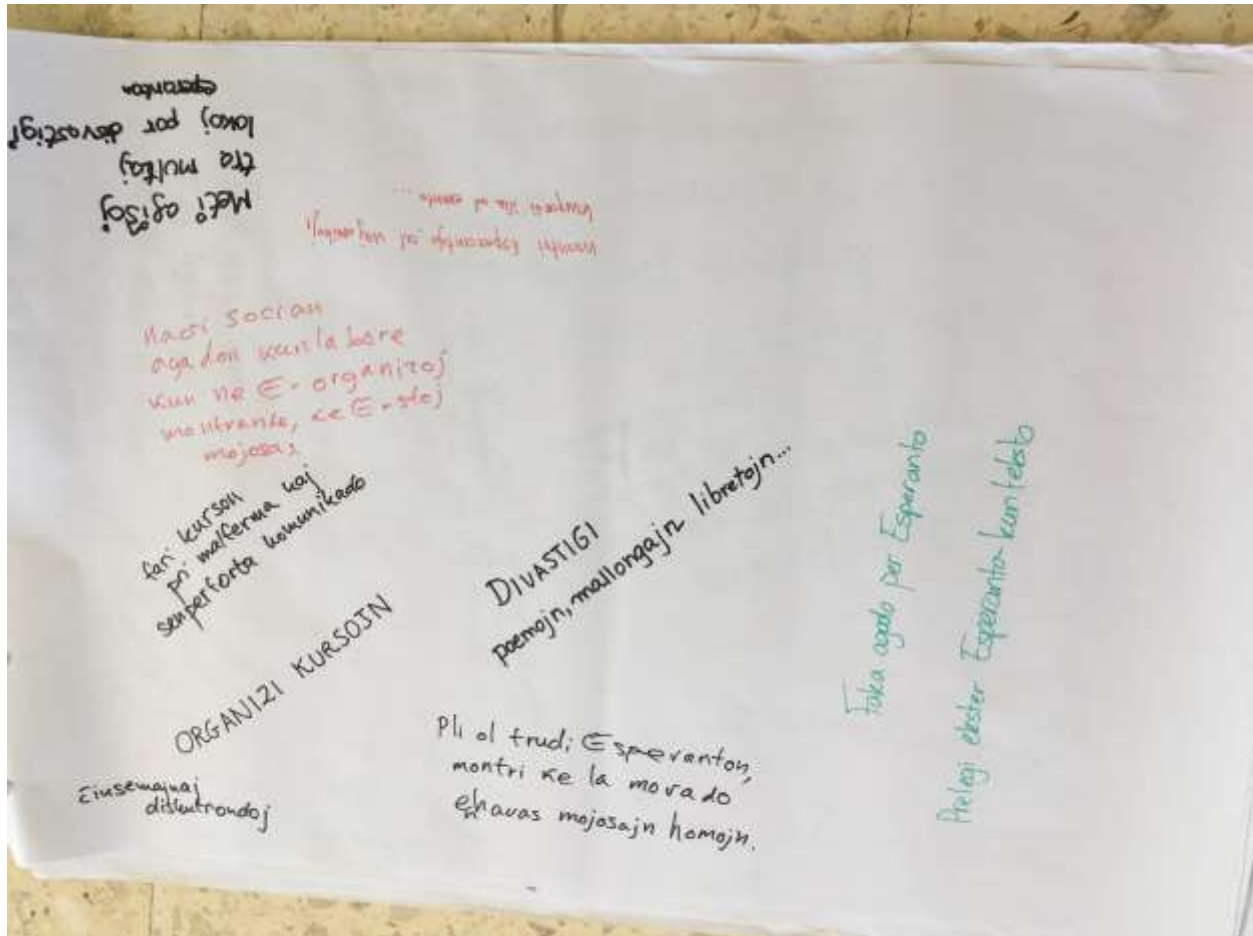 Meti afiŝoj
tra multaj
lokoj por divastigi
eperanton
montri Esperantujo al
al
socian
agadon kunlabore
kun ne E-organizoj
montrante, ke E-stoj
mojosas
fari kurson
pri malferma kaj
senperforta komunikado
ORGANIZI KURSOJN
ĉiusemajnaj
diskutrondoj
DIVASTIGI
poemojn, mallongajn libretojn...
Pli ol trudi Esperanton,
montri ke la movado
enhavas mojosajn homojn.
Faka agado per Esperanto
Prelegi ekster Esperanto-kunteksto